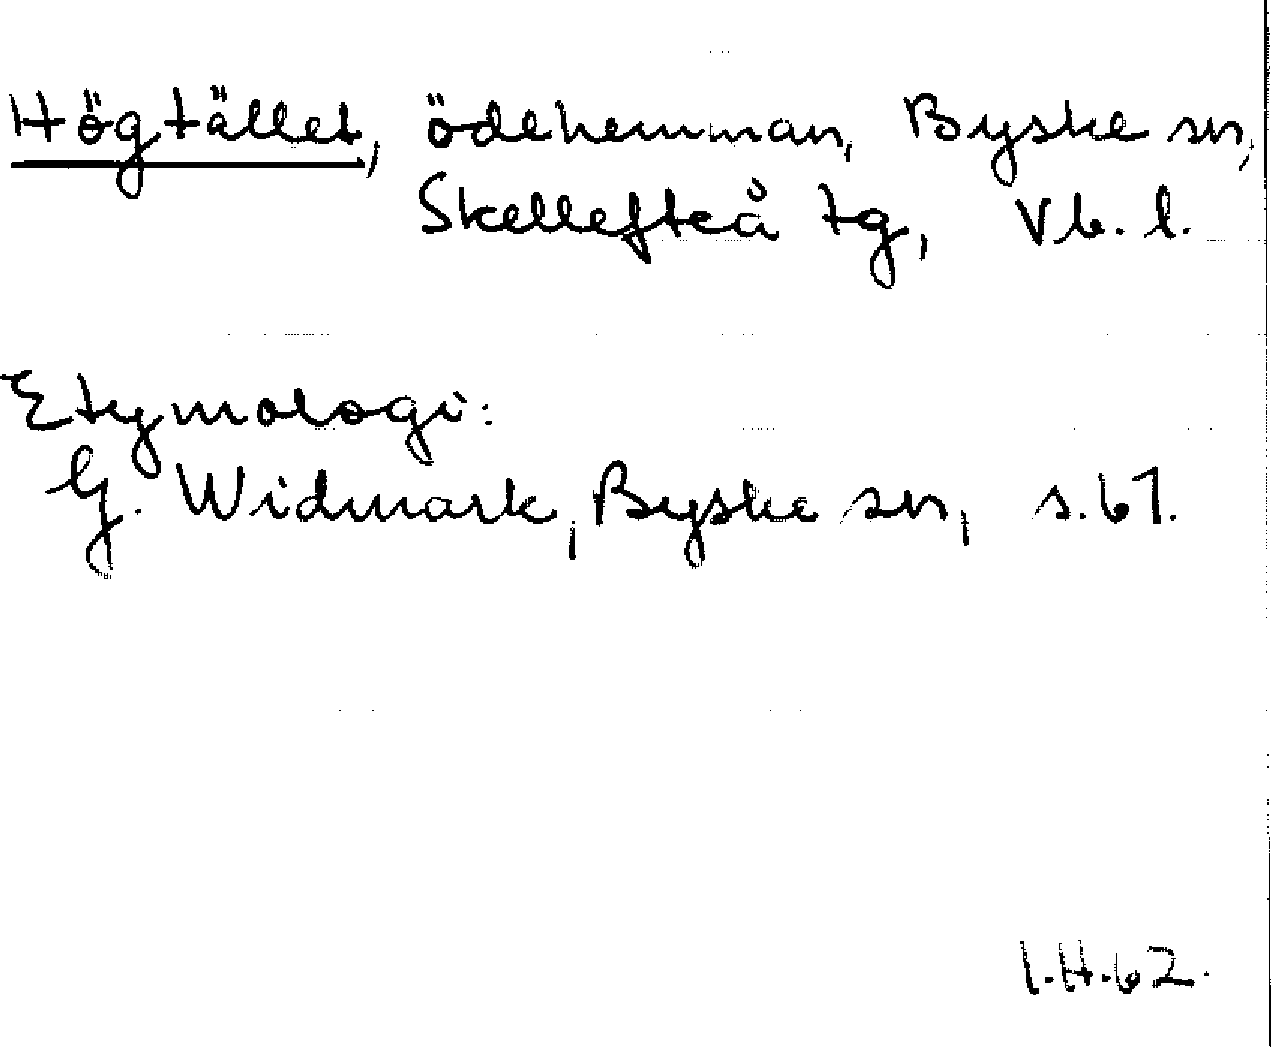 Högtället, ödehemman, Byske sn,
Skellefteå tg, Vb. l.
Etymologi:
G. Widmark, Byske sn, s. 67.
I.H.62.